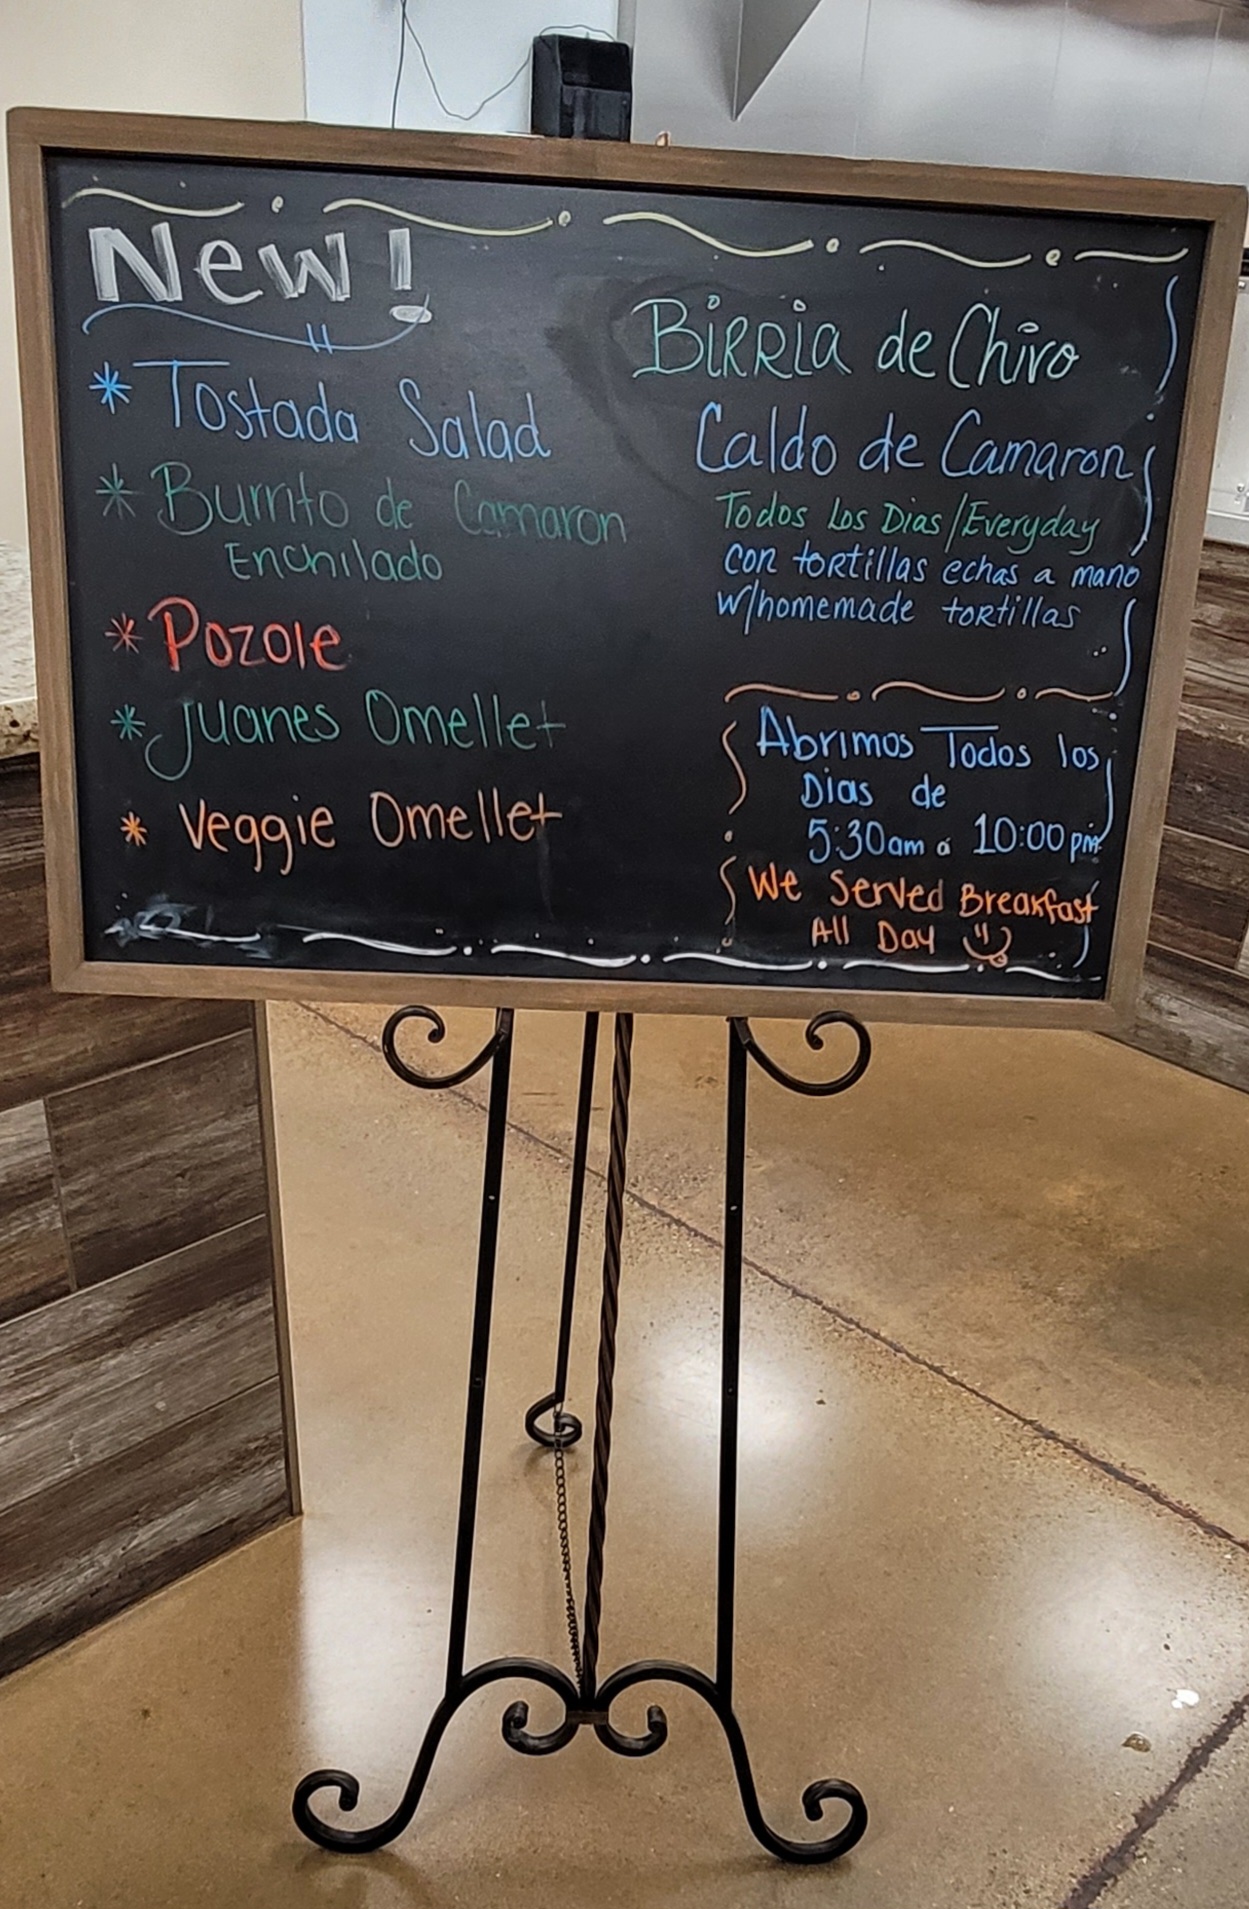 New!
* Tostada Salad
* Burrito de Camaron
Enchilado
* Pozole
* Juanes Omellet
* Veggie Omellet
Birria de Chivo
Caldo de Camaron
Todos Los Dias/Everyday
con tortillas echas a mano
w/homemade tortillas
Abrimos Todos los
Dias de
5:30am a 10:00pm
We Served Breakfast
All Day